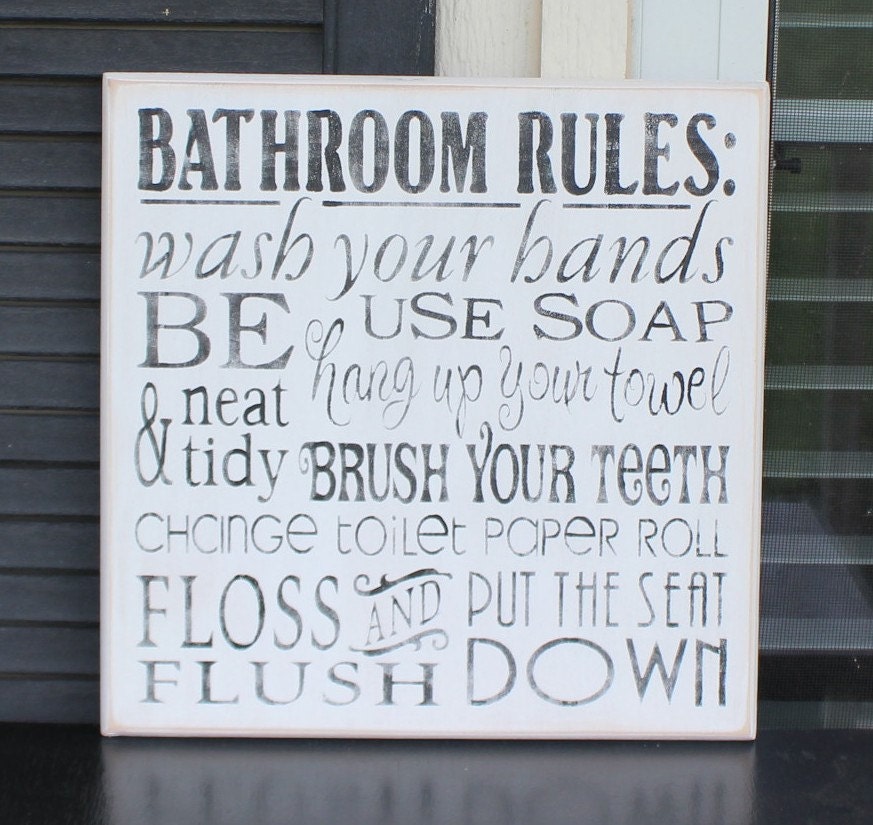 BATHROOM RULES:
wash your hands
BE
USE SOAP
neat
& tidy
hang up your towel
BRUSH YOUR TeeTH
CHANGE TOILET PAPER ROLL
FLOSS AND
FLUSH
PUT THE SEAT
DOWN